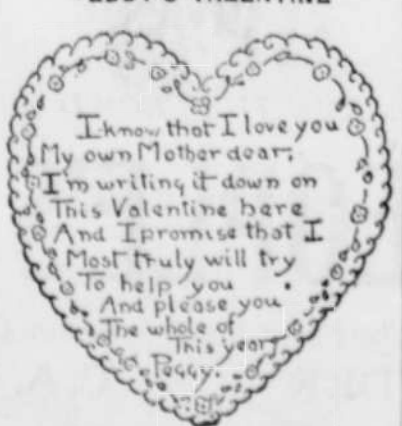 VALENTINE
I know that I love you
My own Mother dear,
I'm writing it down on
This Valentine here
And I promise that I
Most truly will try
To help you
And please you
The whole of
This year
Peggy.